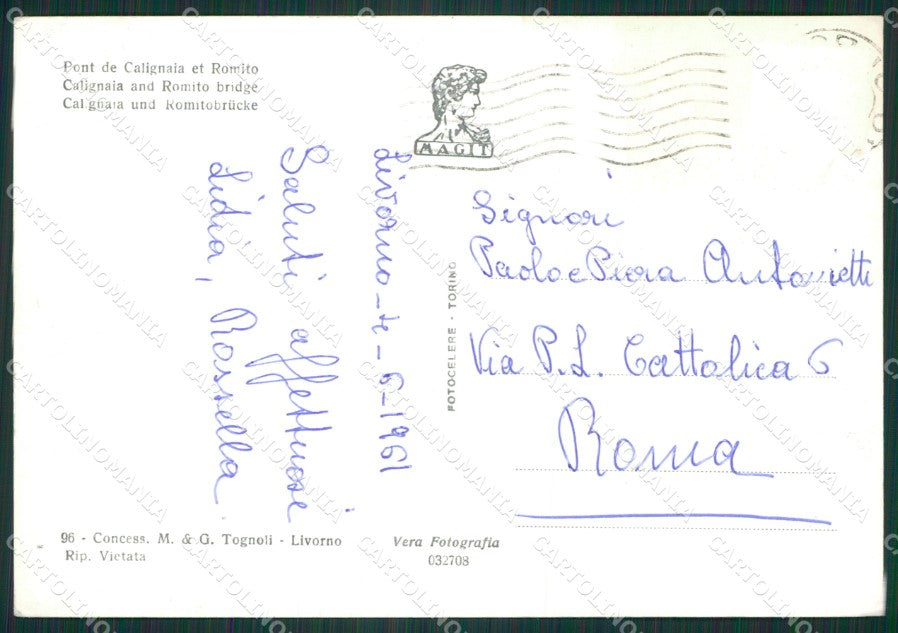 Pont de Calignaia et Romito
Calignaia and Romito bridge
Calignaia und Romitobrücke
MAGIT
Livorno - 4 - 6 - 1961
Saluti affettuosi
Lidia, Rossella
FOTOCELERE - TORINO
Signori
Paolo e Piera Antonietti
Via P.L. Cattolica 6
Roma
96 - Concess. M. & G. Tognoli - Livorno
Rip. Vietata
Vera Fotografia
032708
CARTOLINOMANIA